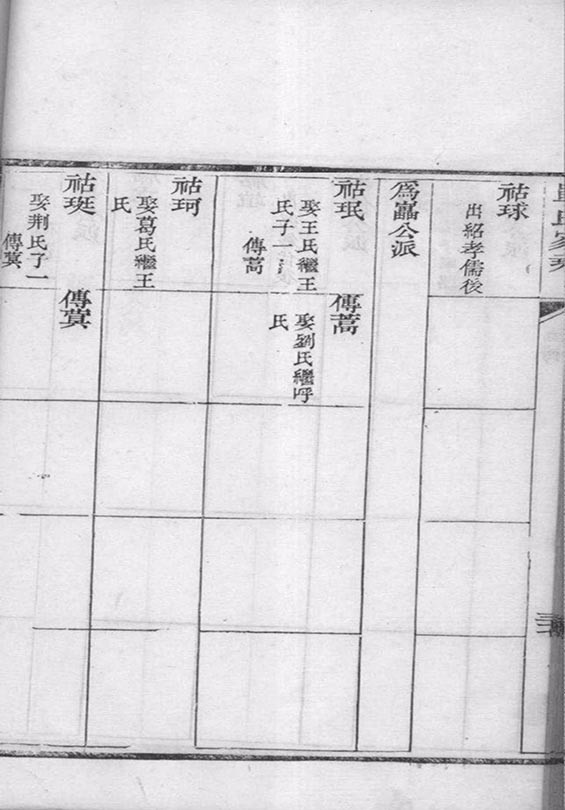 祜球
出紹孝儒後
為靁公派
祜珉
娶王氏繼王
氏子一
傳蒿
傳蒿
娶劉氏繼呼
氏
祜珂
娶葛氏繼王
氏
祜珽
娶荆氏子一
傳蓂
傳蓂